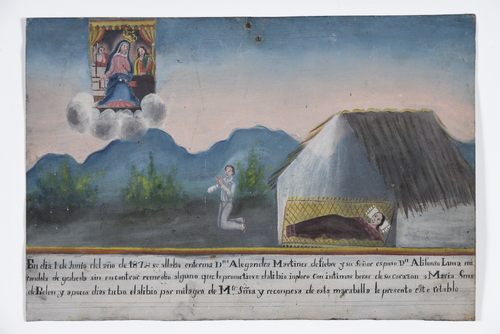 En dia 1 de Junio del año de 187 se allaba enferma Dña Alegandra Martinez de fiebre y su Señor esposo Dn Alifonso Luna
tandola de grabeda sin encontrar remedio alguno que le prometiera el alibio inploro con intimas beras de su corazon a Maria Sma
de Belen y apocos dias tubo el alibio por milagro de Ma Sma y recompesa de esta marabilla le presento este retablo